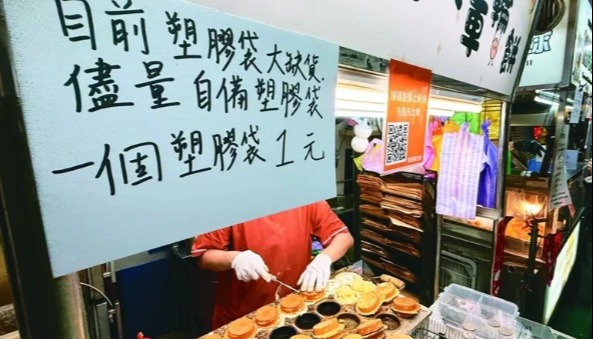 目前塑膠袋大缺貨
儘量自備塑膠袋
一個塑膠袋1元
車輪餅